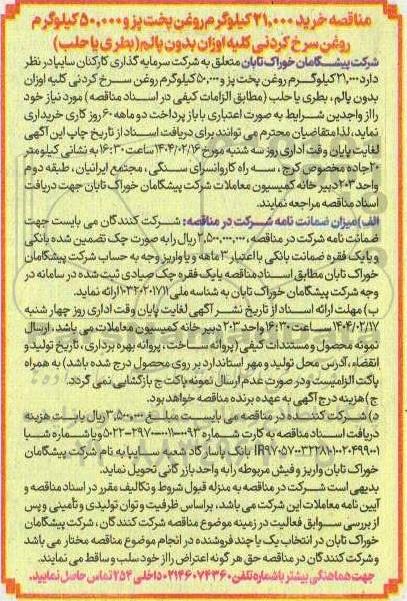 مناقصه خرید ۲۱,۰۰۰ کیلوگرم روغن پخت پز و ۵۰,۰۰۰ کیلوگرم
روغن سرخ کردنی کلیه اوزان بدون پالم (بطری یا حلب)
شرکت پیشگامان خوراک تابان متعلق به شرکت سرمایه گذاری کارکنان سایپا در نظر
دارد ۲۱,۰۰۰ کیلوگرم روغن پخت پز و ۵۰,۰۰۰ کیلوگرم روغن سرخ کردنی کلیه اوزان
بدون پالم، بطری یا حلب (مطابق الزامات کیفی در اسناد مناقصه) مورد نیاز خود
را از واجدین شرایط به صورت اعتباری با باز پرداخت دو ماهه ۶۰ روز کاری خریداری
نماید، لذا متقاضیان محترم می توانند برای دریافت اسناد از تاریخ چاپ این آگهی
لغایت پایان وقت اداری روز سه شنبه مورخ ۱۴۰۴/۰۲/۱۶ ساعت ۱۶:۳۰ به نشانی کیلومتر
۲۰ جاده مخصوص کرج، سه راه کاروانسرای سنگی، مجتمع ایرانیان، طبقه دوم
واحد ۲۰۳ دبیر خانه کمیسیون معاملات شرکت پیشگامان خوراک تابان جهت دریافت
اسناد مناقصه مراجعه نمایند.
الف) میزان ضمانت نامه شرکت در مناقصه: شرکت کنندگان می بایست جهت
ضمانت نامه شرکت در مناقصه، ۳,۵۰۰,۰۰۰,۰۰۰ ریال را به صورت چک تضمین شده بانکی
و یا یک فقره ضمانت بانکی با اعتبار ۳ ماهه و یا واریز وجه به حساب شرکت پیشگامان
خوراک تابان مطابق اسناد مناقصه یا یک فقره چک صیادی ثبت شده در سامانه در
وجه شرکت پیشگامان خوراک تابان به شناسه ملی ۱۰۳۲۰۲۰۱۷۱۱ ارائه نماید.
ب) مهلت ارائه اسناد از تاریخ نشر آگهی لغایت پایان وقت اداری روز چهار شنبه
۱۴۰۴/۰۲/۱۷ ساعت ۱۶:۳۰ واحد ۲۰۳ دبیر خانه کمیسیون معاملات می باشد، ارسال
نمونه محصول و مستندات کیفی (پروانه ساخت، پروانه بهره برداری، تاریخ تولید و
انقضاء، آدرس محل تولید و مهر استاندارد بر روی محصول درج شده باشد) به همراه
پاکت الزامیست و در صورت عدم ارسال نمونه پاکت ج بازگشایی نمی گردد.
ج) هزینه درج آگهی به عهده برنده مناقصه خواهد بود.
د) شرکت کننده در مناقصه می بایست مبلغ ۳,۵۰۰,۰۰۰ ریال بابت هزینه
دریافت اسناد مناقصه به کارت شماره ۵۰۲۲-۲۹۷۰-۰۰۱۱-۰۹۲۰ و یا شماره شبا
بانک پاسارگاد شعبه سایپا به نام شرکت پیشگامان
خوراک تابان واریز و فیش مربوطه را به واحد بازرگانی تحویل نماید.
بدیهی است شرکت در مناقصه به منزله قبول شروط و تکالیف مقرر در اسناد مناقصه و
آیین نامه معاملات این شرکت می باشد، براساس ظرفیت و توان تولیدی و تأمینی و پس
از بررسی سوابق فعالیت در زمینه موضوع مناقصه شرکت کنندگان، شرکت پیشگامان
خوراک تابان در انتخاب یک یا چند فروشنده در انجام موضوع مناقصه مختار می باشد
و شرکت کنندگان در مناقصه حق هر گونه اعتراض را از خود سلب و ساقط می نمایند.
جهت هماهنگی بیشتر با شماره تلفن ۰۲۱۴۶۰۷۴۳۶۰ داخلی ۲۵۴ تماس حاصل نمایید.